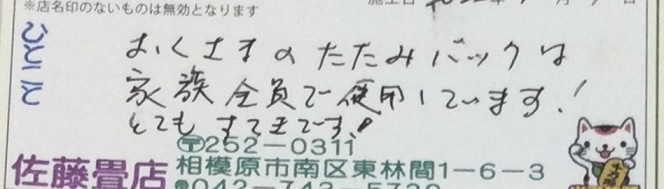 ※店名印のないものは無効となります
ひとこと
おくさまのたたみバックは
家族全員で使用しています!
とてもすてきです!
〒252-0311
佐藤畳店
相模原市南区東林間1-6-3